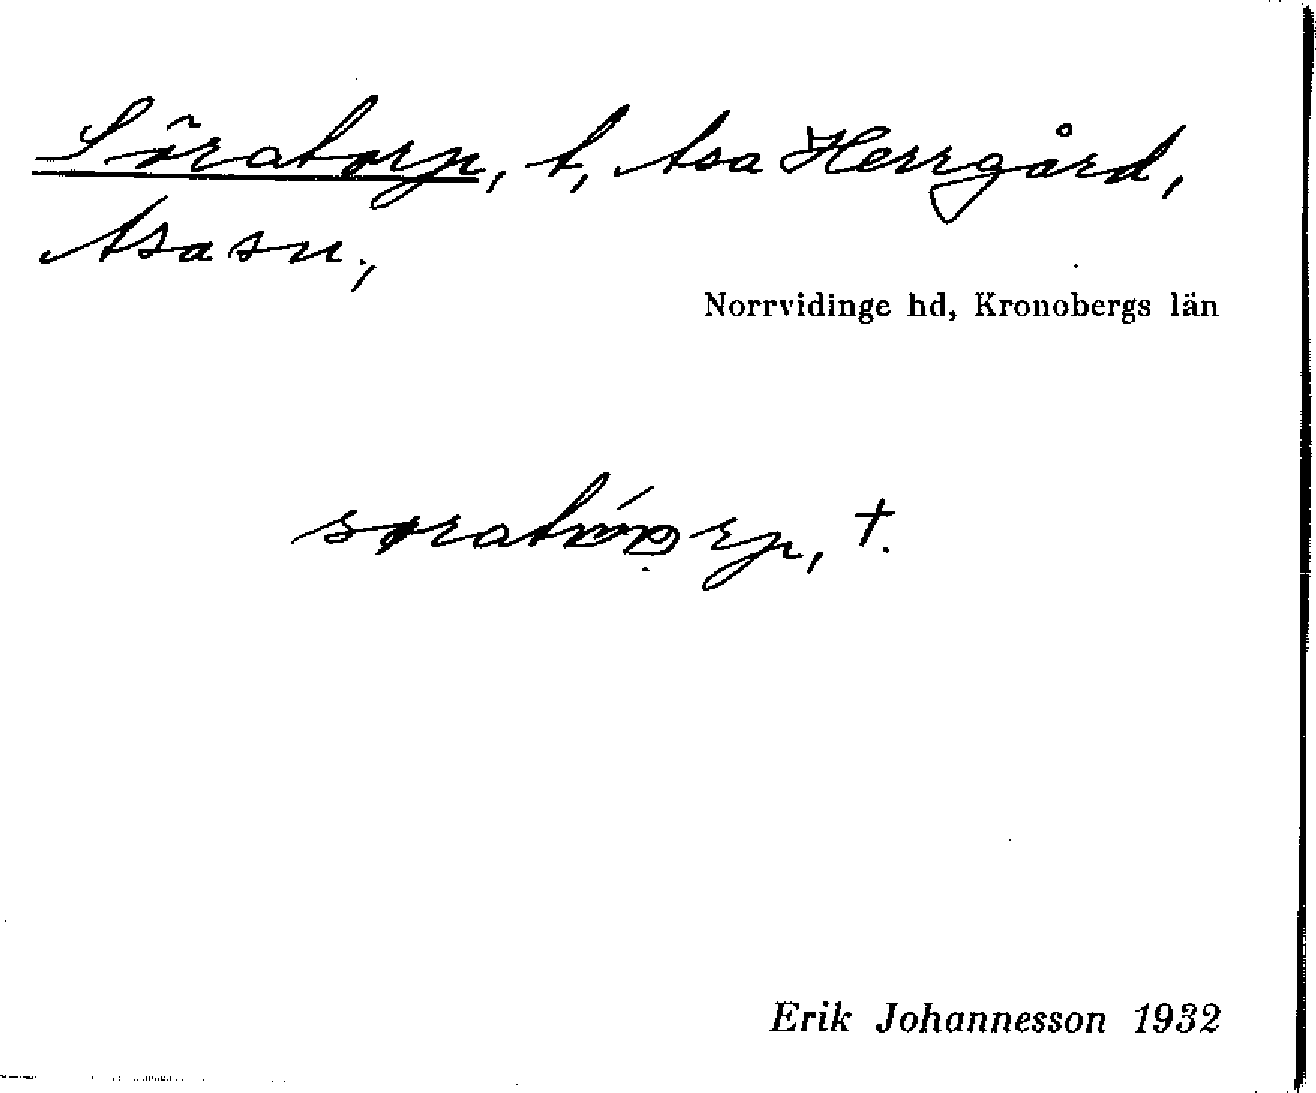 Söratorp, t, Asa Herrgård,
Asa sn.,
Norrvidinge hd, Kronobergs län
†.
Erik Johannesson 1932